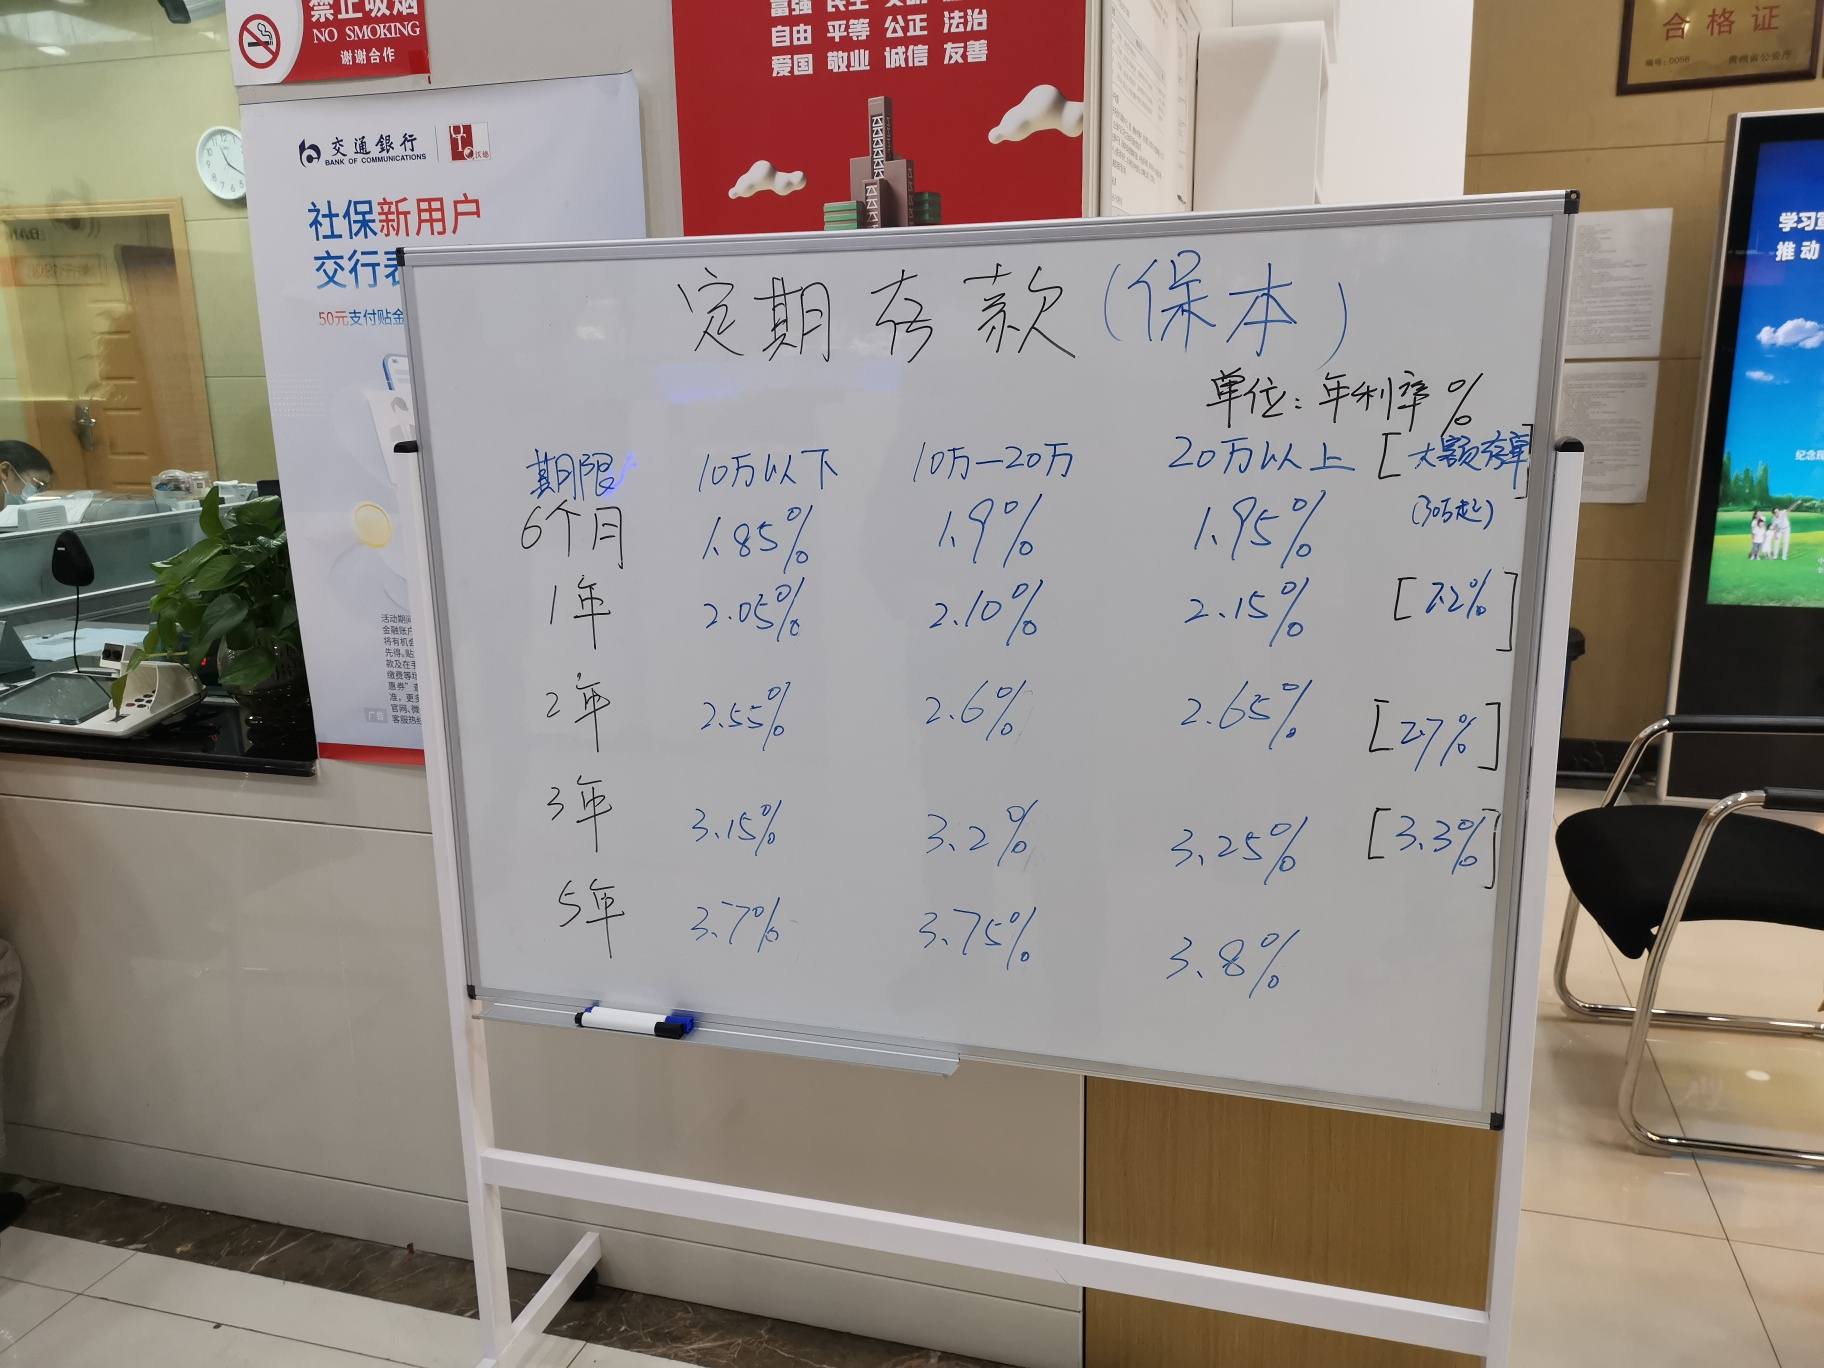 禁止吸烟
NO SMOKING
谢谢合作
交通銀行
BANK OF COMMUNICATIONS
社保新用户
交行
50元支付贴金
广告
富强 民主 文明
自由 平等 公正 法治
爱国 敬业 诚信 友善
合格证
编号:0056 贵州省公安厅
学习
推动
定期存款(保本)
单位:年利率%
期限 10万以下 10万—20万 20万以上 [大额存单]
(30万起)
6个月 1.85% 1.9% 1.95%
1年 2.05% 2.10% 2.15% [2.2%]
2年 2.55% 2.6% 2.65% [2.7%]
3年 3.15% 3.2% 3.25% [3.3%]
5年 3.7% 3.75% 3.8%